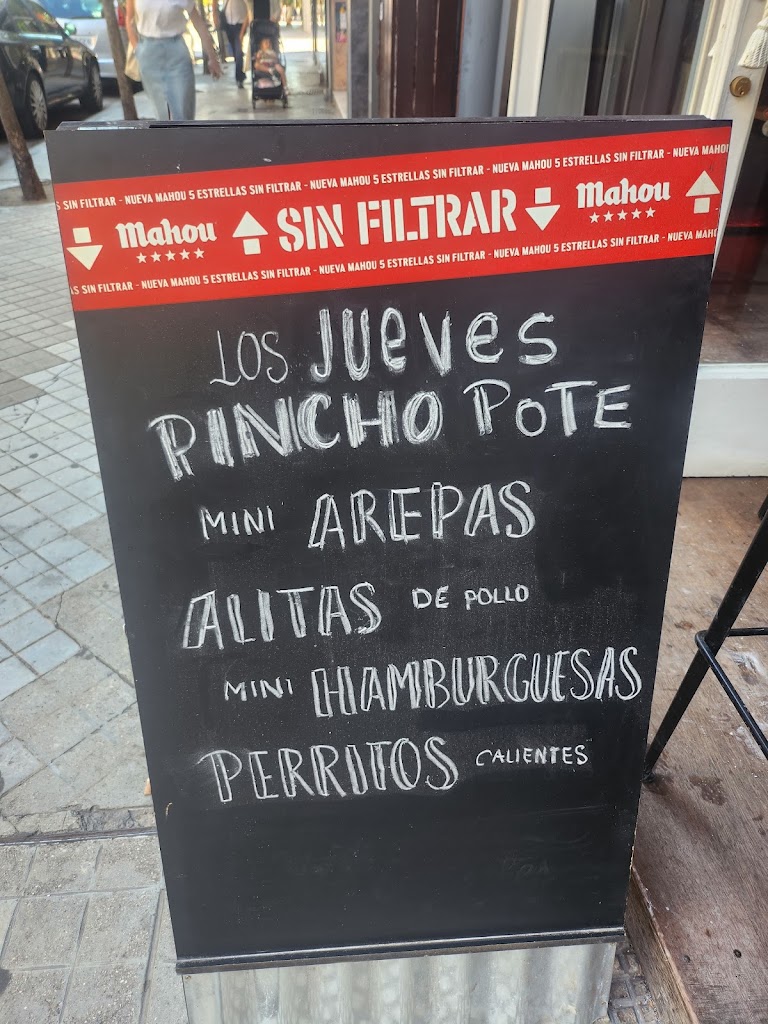 S SIN FILTRAR - NUEVA MAHOU 5 ESTRELLAS SIN FILTRAR - NUEVA MAHOU 5 ESTRELLAS SIN FILTRAR - NUEVA MAHOU 5 ESTRELLAS SIN FILTRAR - NUEVA MAHOU
Mahou SIN FILTRAR Mahou
AS SIN FILTRAR - NUEVA MAHOU 5 ESTRELLAS SIN FILTRAR - NUEVA MAHOU 5 ESTRELLAS SIN FILTRAR - NUEVA MAHOU 5 ESTRELLAS SIN FILTRAR - NUEVA MAHO
LOS JUEVES
PINCHO POTE
MINI AREPAS
ALITAS DE POLLO
MINI HAMBURGUESAS
PERRITOS CALIENTES